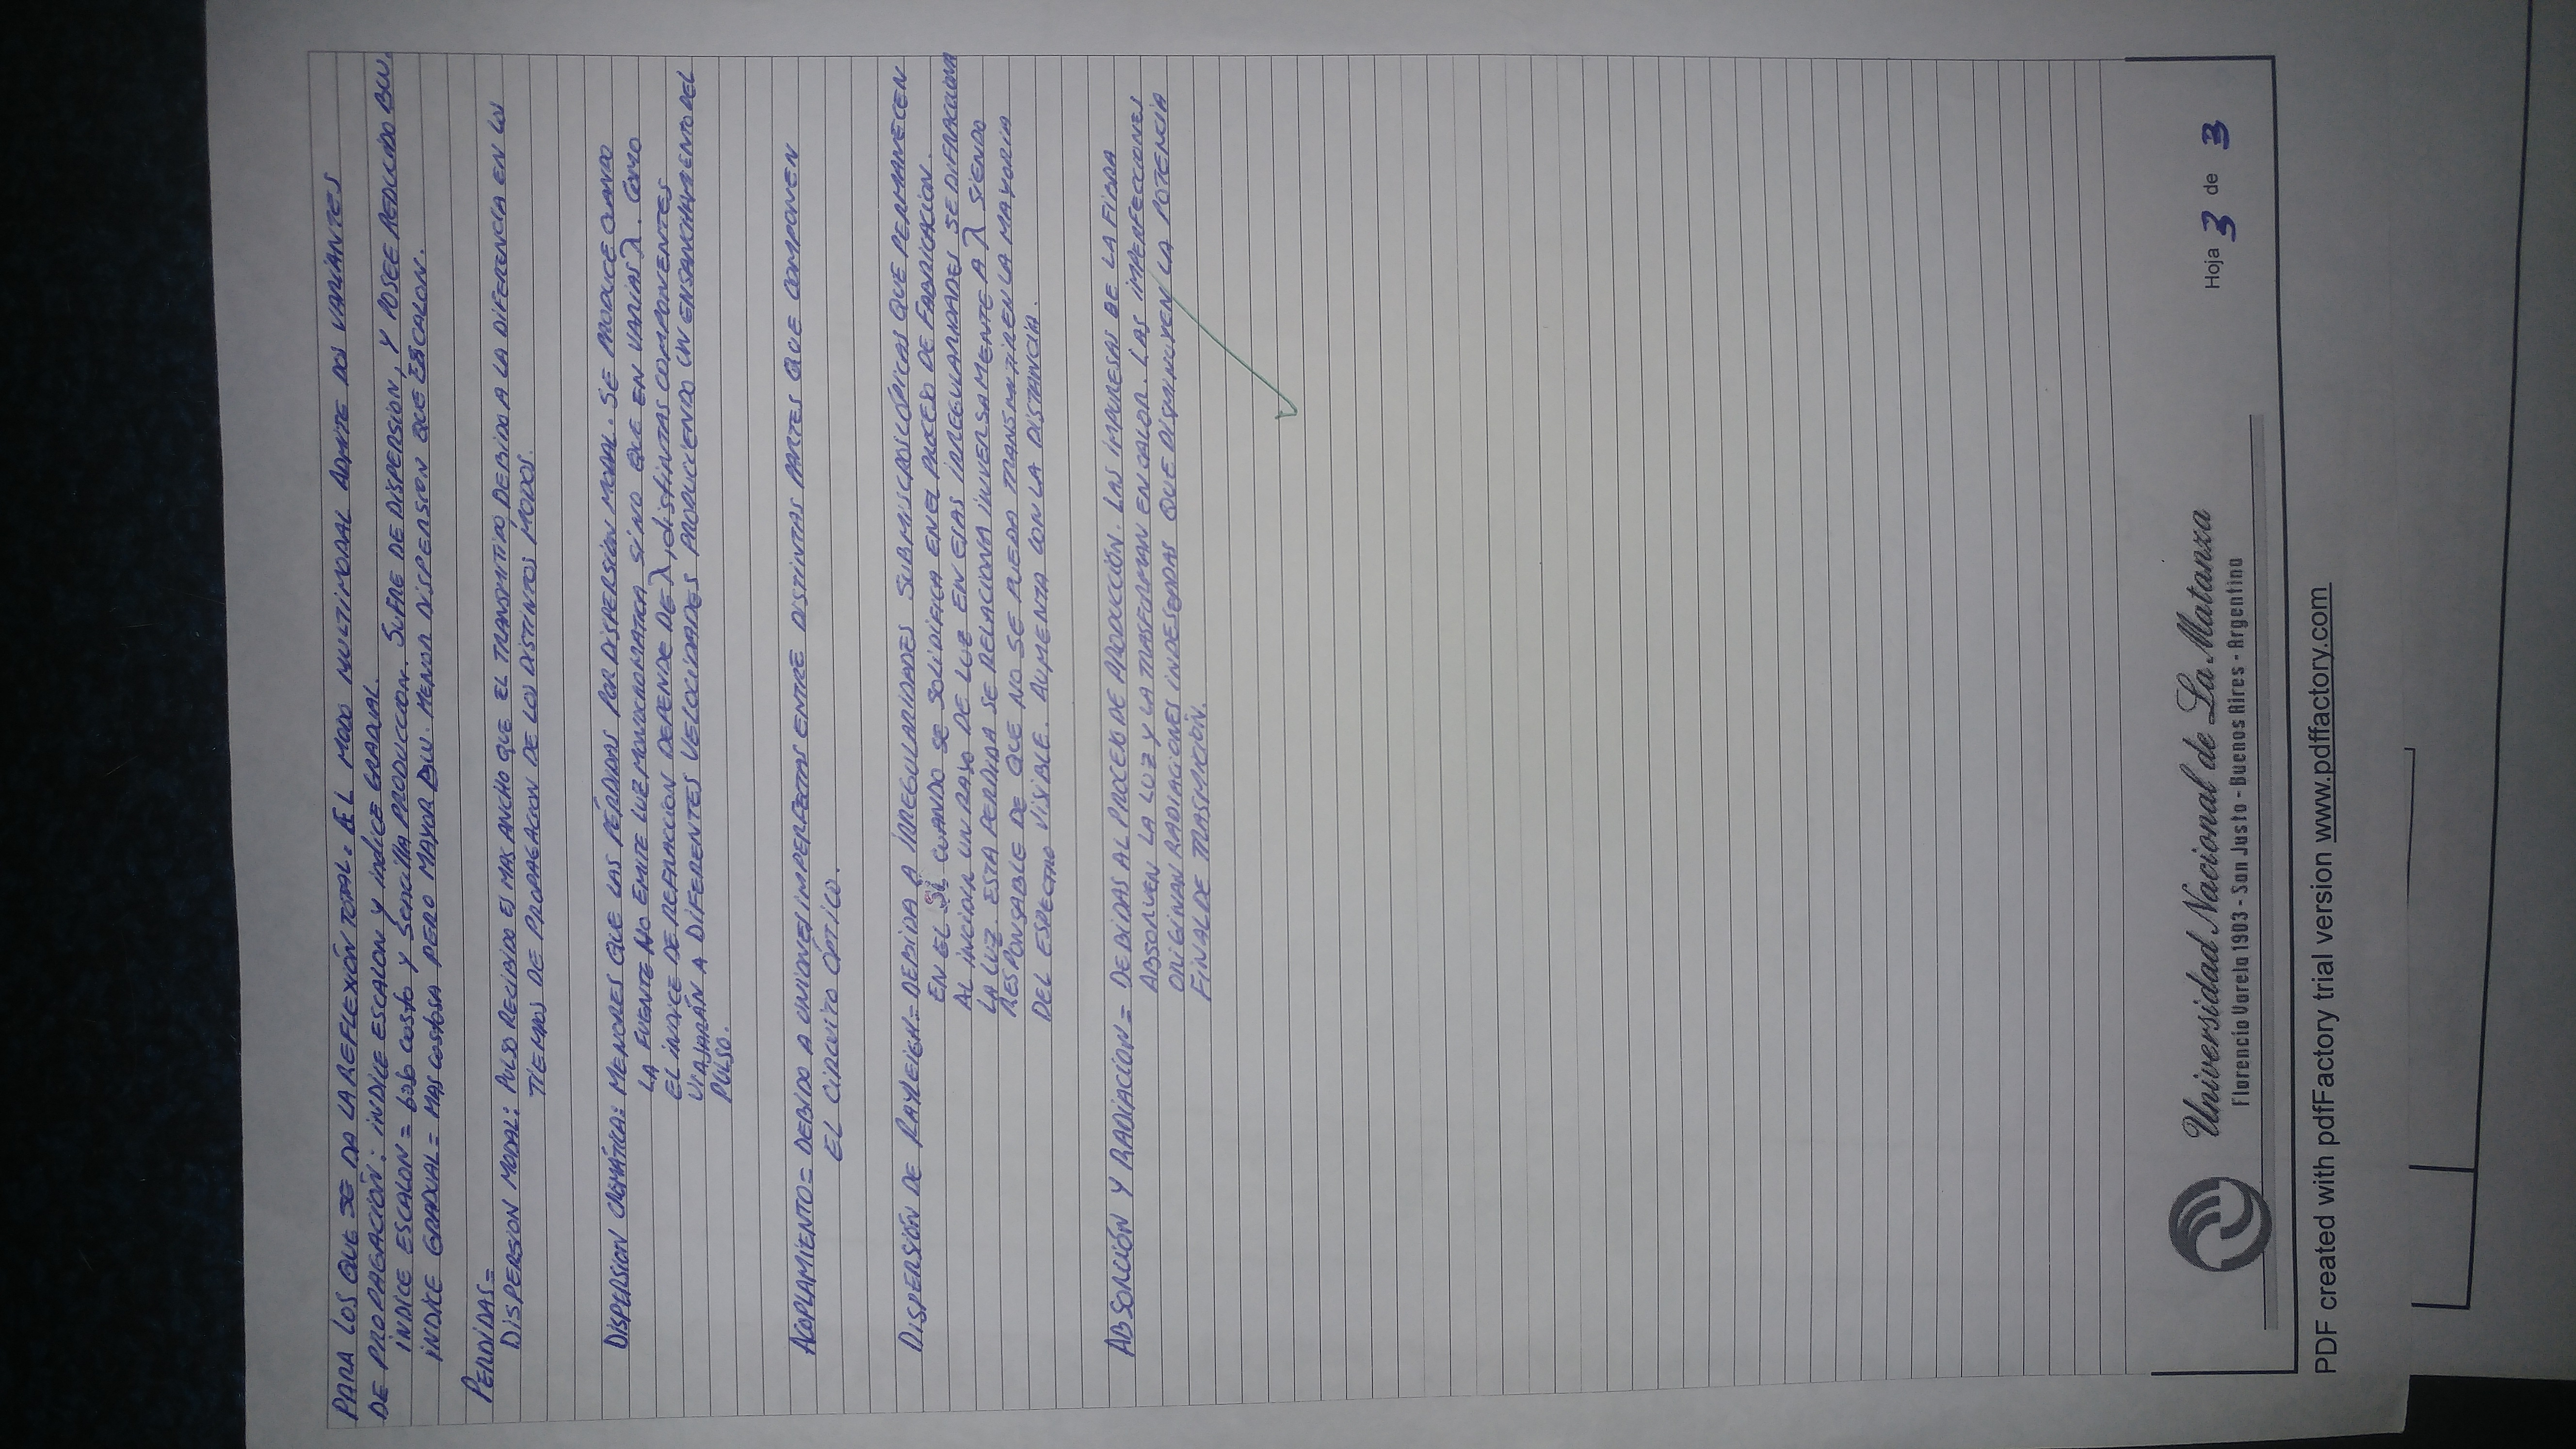 PARA LOS QUE SE DA LA REFLEXIÓN TOTAL. EL MODO MULTIMODAL ADMITE DOS VARIANTES
DE PROPAGACIÓN: INDICE ESCALON Y INDICE GRADUAL.
INDICE ESCALON = bajo costo y sencilla PRODUCCION. SUFRE DE DISPERSION, Y POSEE REDUCIDO BW.
INDICE GRADUAL = MAS costosa PERO MAYOR BW. MENOR DISPERSION QUE ESCALON.
PERDIDAS=
DISPERSION MODAL: PULSO RECIBIDO ES MAS ANCHO QUE EL TRANSMITIDO, DEBIDO A LA DIFERENCIA EN LOS
TIEMPOS DE PROPAGACION DE LOS DISTINTOS MODOS.
DISPERSION CROMÁTICA: MENORES QUE LAS PÉRDIDAS POR DISPERSION MODAL. SE PRODUCE CUANDO
LA FUENTE NO EMITE LUZ MONOCROMATICA SINO QUE EN VARIAS λ. COMO
EL INDICE DE REFRACCION DEPENDE DE λ, distintas COMPONENTES
VIAJARÁN A DIFERENTES VELOCIDADES PRODUCIENDO UN ENSANCHAMIENTO DEL
PULSO.
ACOPLAMIENTO = DEBIDO A UNIONES IMPERFECTAS ENTRE DISTINTAS PARTES QUE COMPONEN
EL CIRCUITO ÓPTICO.
DISPERSIÓN DE RAYLEIGH = DEBIDA A IRREGULARIDADES SUBMISCROSCÓPICAS QUE PERMANECEN
EN EL Si CUANDO SE SOLIDIFICA EN EL PROCESO DE FABRICACION.
AL INCIDIR UN RAYO DE LUZ EN ESAS IRREGULARIDADES SE DIFRACCIONA
LA LUZ. ESTA PERDIDA SE RELACIONA INVERSAMENTE A λ SIENDO
RESPONSABLE DE QUE NO SE PUEDA TRANSMITIR EN LA MAYORIA
DEL ESPECTRO VISIBLE. AUMENTA CON LA DISTANCIA.
ABSORCIÓN Y RADIACION = DEBIDAS AL PROCESO DE PRODUCCIÓN. LAS IMPURESAS DE LA FIBRA
ABSORVEN LA LUZ Y LA TRASFORMAN EN CALOR. LAS IMPERFECCIONES
ORIGINAN RADIACIONES INDESEADAS QUE DISMINUYEN LA POTENCIA
FINAL DE TRASMICIÓN.
Universidad Nacional de La Matanza
Florencio Varela 1903 - San Justo - Buenos Aires - Argentina
Hoja 3 de 3
PDF created with pdfFactory trial version www.pdffactory.com